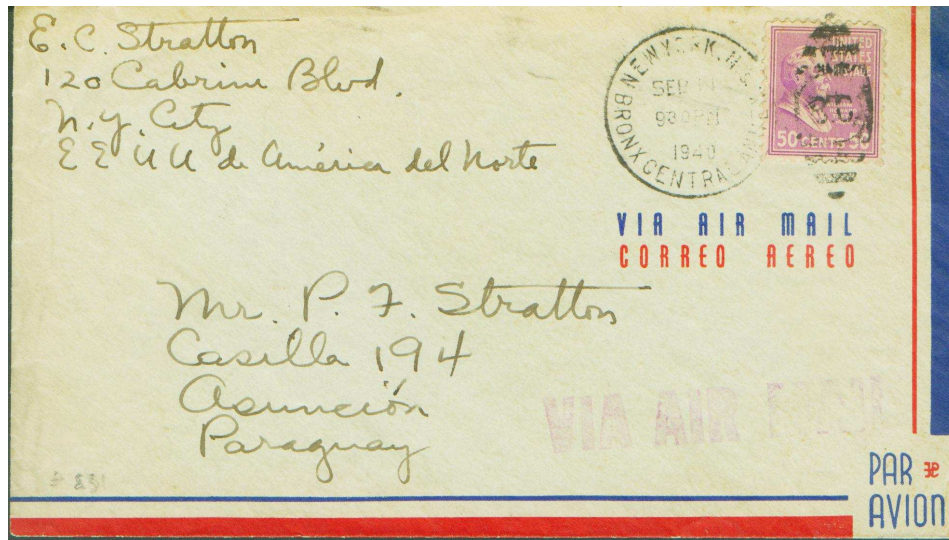 E. C. Stratton
120 Cabrini Blvd.
N. Y. City
E E U U de América del Norte
NEW YORK, N.Y.
BRONX CENTRAL ANNEX
SEP
930 PM
1940
UNITED
STATES
50 CENTS 50
VIA AIR MAIL
CORREO AEREO
Mr. P. F. Stratton
Casilla 194
Asunción
Paraguay
VIA AIR MAIL
PAR
AVION